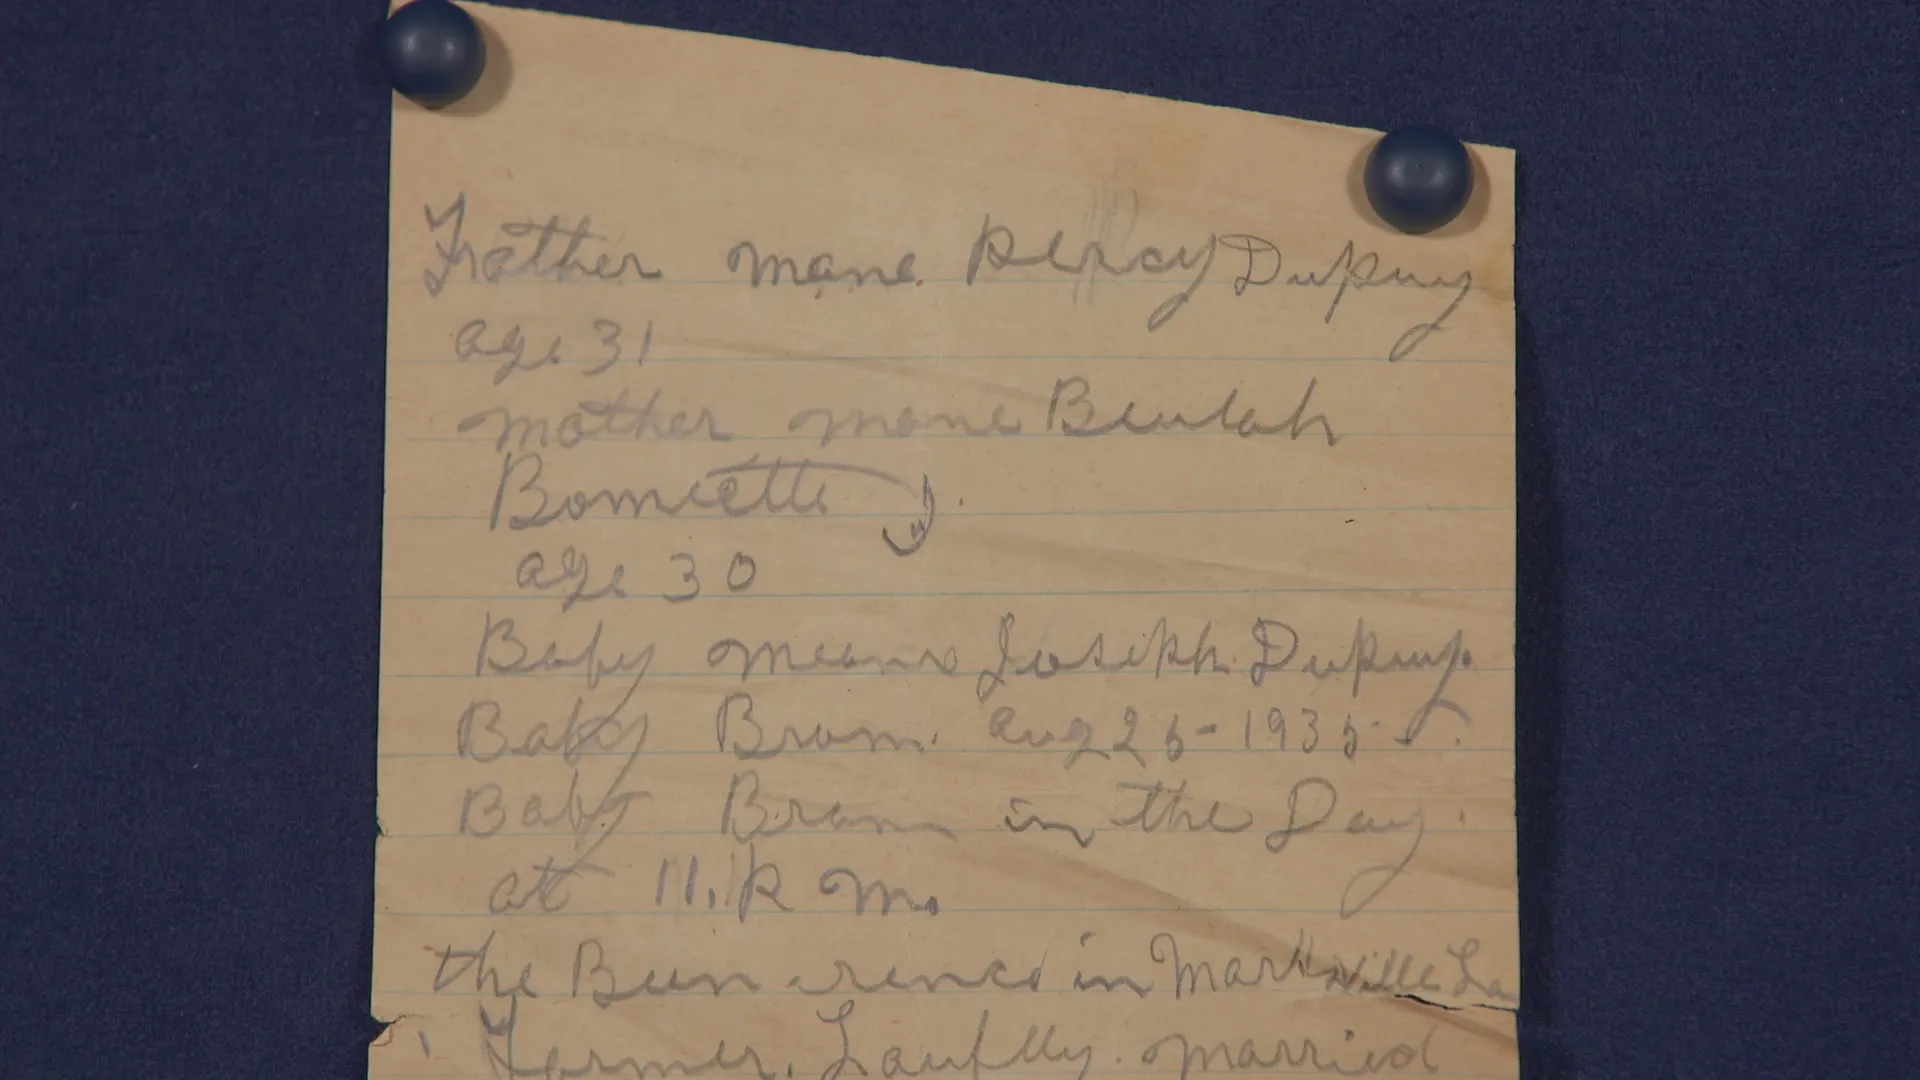 Frather mane Percy Dupuy
age 31
mother mane Beulah
Bomettte
age 30
Baby means Joseph Dupuy.
Baby Brom. aug 25-1935
Baby Brom in the Day.
at 11. P m.
the Been rence in Marksville La
Former. Lauflly. married